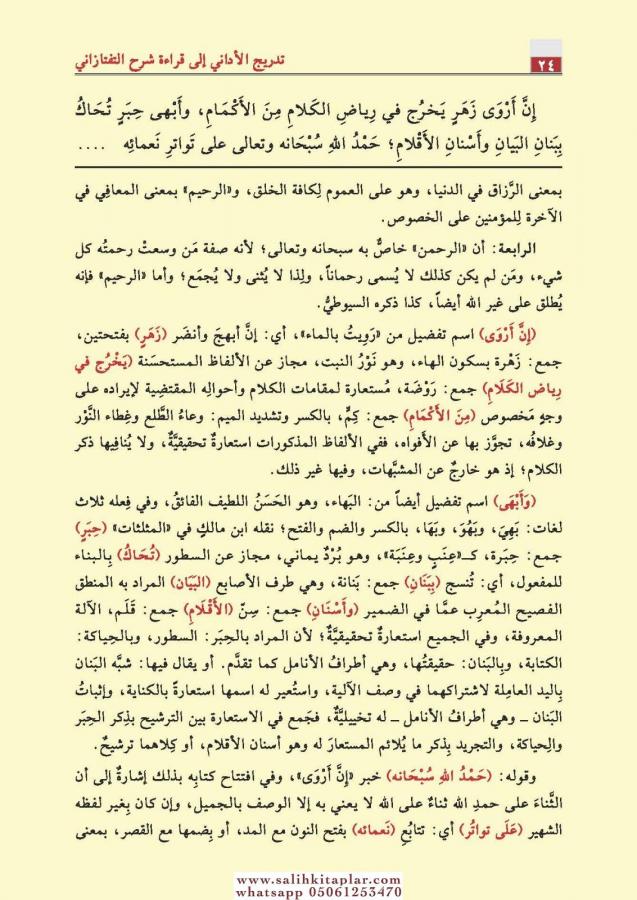 ٢٤
تدريج الأداني إلى قراءة شرح التفتازاني
إِنَّ أَرْوَى زَهَرٍ يَخرُج في رِياضِ الكَلامِ مِنَ الأَكْمَامِ، وأَبْهى حِبَرٍ تُحَاكُ
بِبَنانِ البَيانِ وأَسْنانِ الأَقْلامِ؛ حَمْدُ اللهِ سُبْحَانه وتعالى على تَواترِ نَعمائِهِ ....
بمعنى الرَّزاق في الدنيا، وهو على العموم لِكافة الخلق، و«الرحيم» بمعنى المعافِي في
الآخرة لِلمؤمنين على الخصوص.
الرابعة: أن «الرحمن» خاصٌّ به سبحانه وتعالى؛ لأنه صفة مَن وسعتْ رحمتُه كل
شيء، ومَن لم يكن كذلك لا يُسمى رحماناً، ولِذا لا يُثنى ولا يُجمَع؛ وأما «الرحيم» فإنه
يُطلق على غير الله أيضاً، كذا ذكره السيوطيُّ.
(إنَّ أَرْوَى) اسم تفضيل من «رَوِيتُ بالماء»، أي: إنَّ أبهجَ وأنضَر (زَهَرٍ) بفتحتين،
جمع: زَهْرة بسكون الهاء، وهو نَوْرُ النبت، مجاز عن الألفاظ المستحسَنة (يَخْرُج في
رِياضِ الكَلَامِ) جمع: رَوْضَة، مُستعارة لمقامات الكلام وأحوالِه المقتضِية لإيراده على
وجهٍ مَخصوص (مِنَ الأَكْمَامِ) جمع: كِمٍّ، بالكسر وتشديد الميم: وعاءُ الطَّلع وغِطاء النَّوْر
وغلافُه، تجوَّز بها عن الأفواه، ففي الألفاظ المذكورات استعارةٌ تحقيقيَّةٌ، ولا يُنافِيها ذكر
الكلام؛ إذ هو خارجٌ عن المشبَّهات، وفيها غير ذلك.
(وَأَبْهَى) اسم تفضيل أيضاً من: البَهاء، وهو الحَسَنُ اللطيف الفائقُ، وفي فِعله ثلاث
لغات: بَهِيَ، وبَهُوَ، وبَهَا، بالكسر والضم والفتح؛ نقله ابن مالكٍ في «المثلثات» (حِبَرٍ)
جمع: حِبَرة، كـ«عِنَبٍ وعِنَبَة»، وهو بُرْدٌ يماني، مجاز عن السطور (تُحَاكُ) بِالبناء
للمفعول، أي: تُنسج (بِبَنَانِ) جمع: بَنانة، وهي طرف الأصابع (البَيَانِ) المراد به المنطق
الفصيح المُعرِب عمَّا في الضمير (وأَسْنَانِ) جمع: سِنّ (الأَقْلَامِ) جمع: قَلَم، الآلة
المعروفة، وفي الجميع استعارةٌ تحقيقيَّةٌ؛ لأن المراد بالحِبَر: السطور، وبالحِياكة:
الكتابة، وبِالبَنان: حقيقتُها، وهي أطرافُ الأنامل كما تقدَّم. أو يقال فيها: شبَّه البَنان
بِاليد العامِلة لاشتراكهما في وصف الآلية، واستُعير له اسمها استعارةً بالكناية، وإثباتُ
البَنان ــ وهي أطرافُ الأنامل ــ له تخييليَّةٌ، فجَمع في الاستعارة بين الترشيح بذِكر الحِبَر
والحِياكة، والتجريد بِذكر ما يُلائم المستعارَ له وهو أسنان الأقلام، أو كِلاهما ترشيحٌ.
وقوله: (حَمْدُ اللهِ سُبْحَانه) خبر «إنَّ أَرْوَى»، وفي افتتاح كتابِه بذلك إشارةٌ إلى أن
الثَّناءَ على حمدِ الله ثناءٌ على الله لا يعني به إلا الوصف بالجميل، وإن كان بِغير لفظه
الشهير (عَلَى تواتُرِ) أي: تتابُعِ (نَعمائه) بفتح النون مع المد، أو بِضمها مع القصر، بمعنى
www.salihkitaplar.com
whatsapp 05061253470